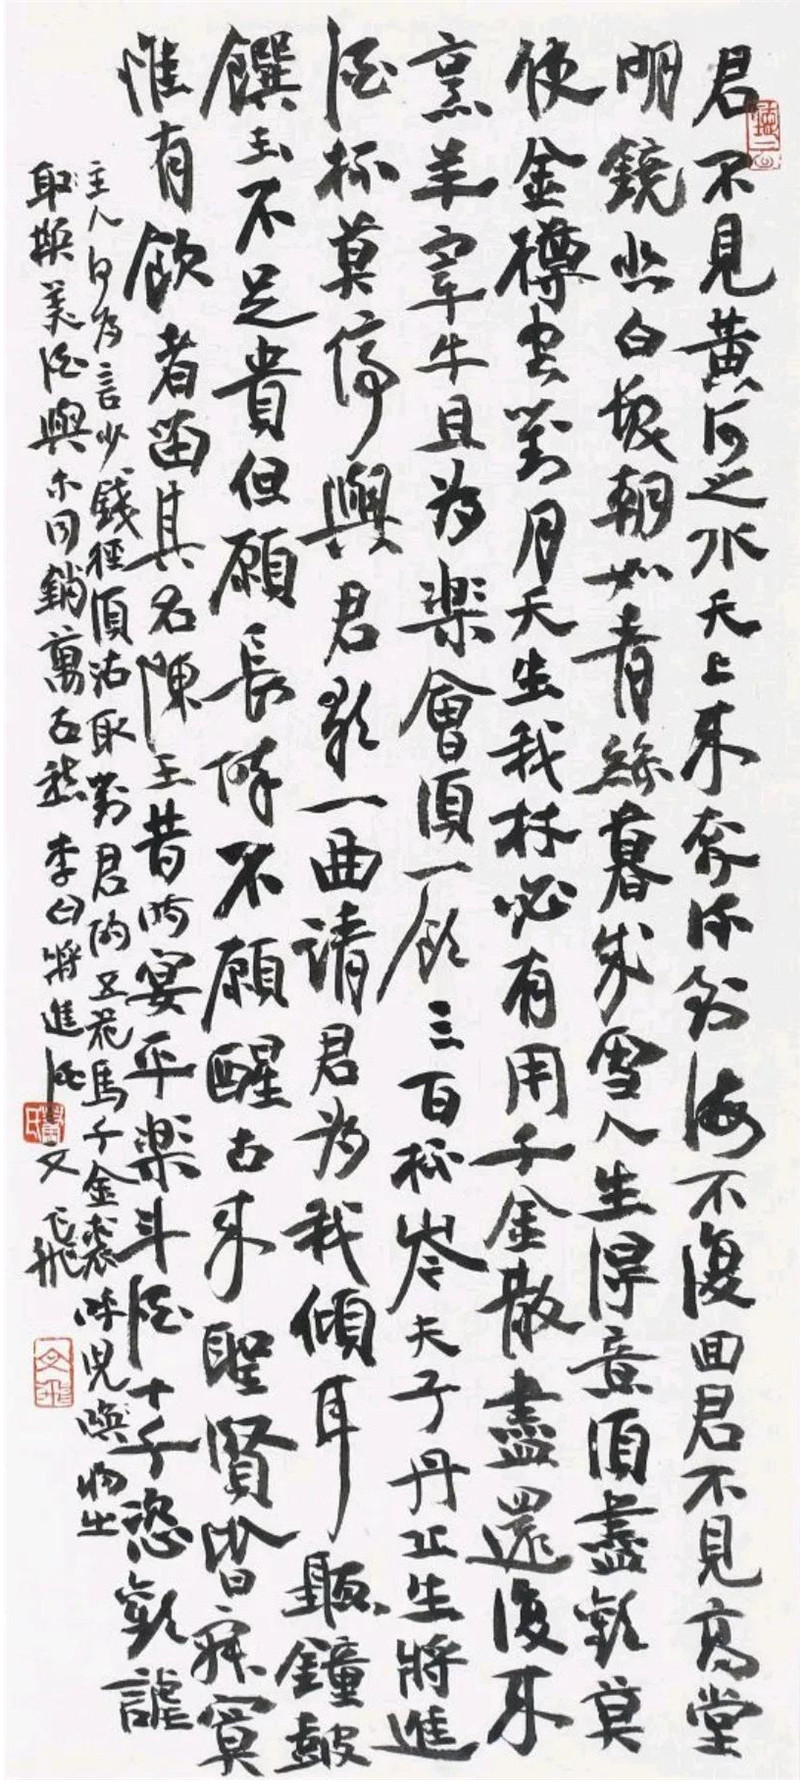 君不見黃河之水天上來奔流到海不復回君不見高堂
明鏡悲白髮朝如青絲暮成雪人生得意須盡歡莫
使金樽空對月天生我材必有用千金散盡還復來
烹羊宰牛且為樂會須一飲三百杯岑夫子丹丘生將進
酒杯莫停與君歌一曲請君為我傾耳聽鐘鼓
饌玉不足貴但願長醉不願醒古來聖賢皆寂寞
惟有飲者留其名陳王昔時宴平樂斗酒十千恣歡謔
主人何為言少錢徑須沽取對君酌五花馬千金裘呼兒喚將出
取換美酒與尔同銷萬古愁 李白將進酒 文飛
文飛